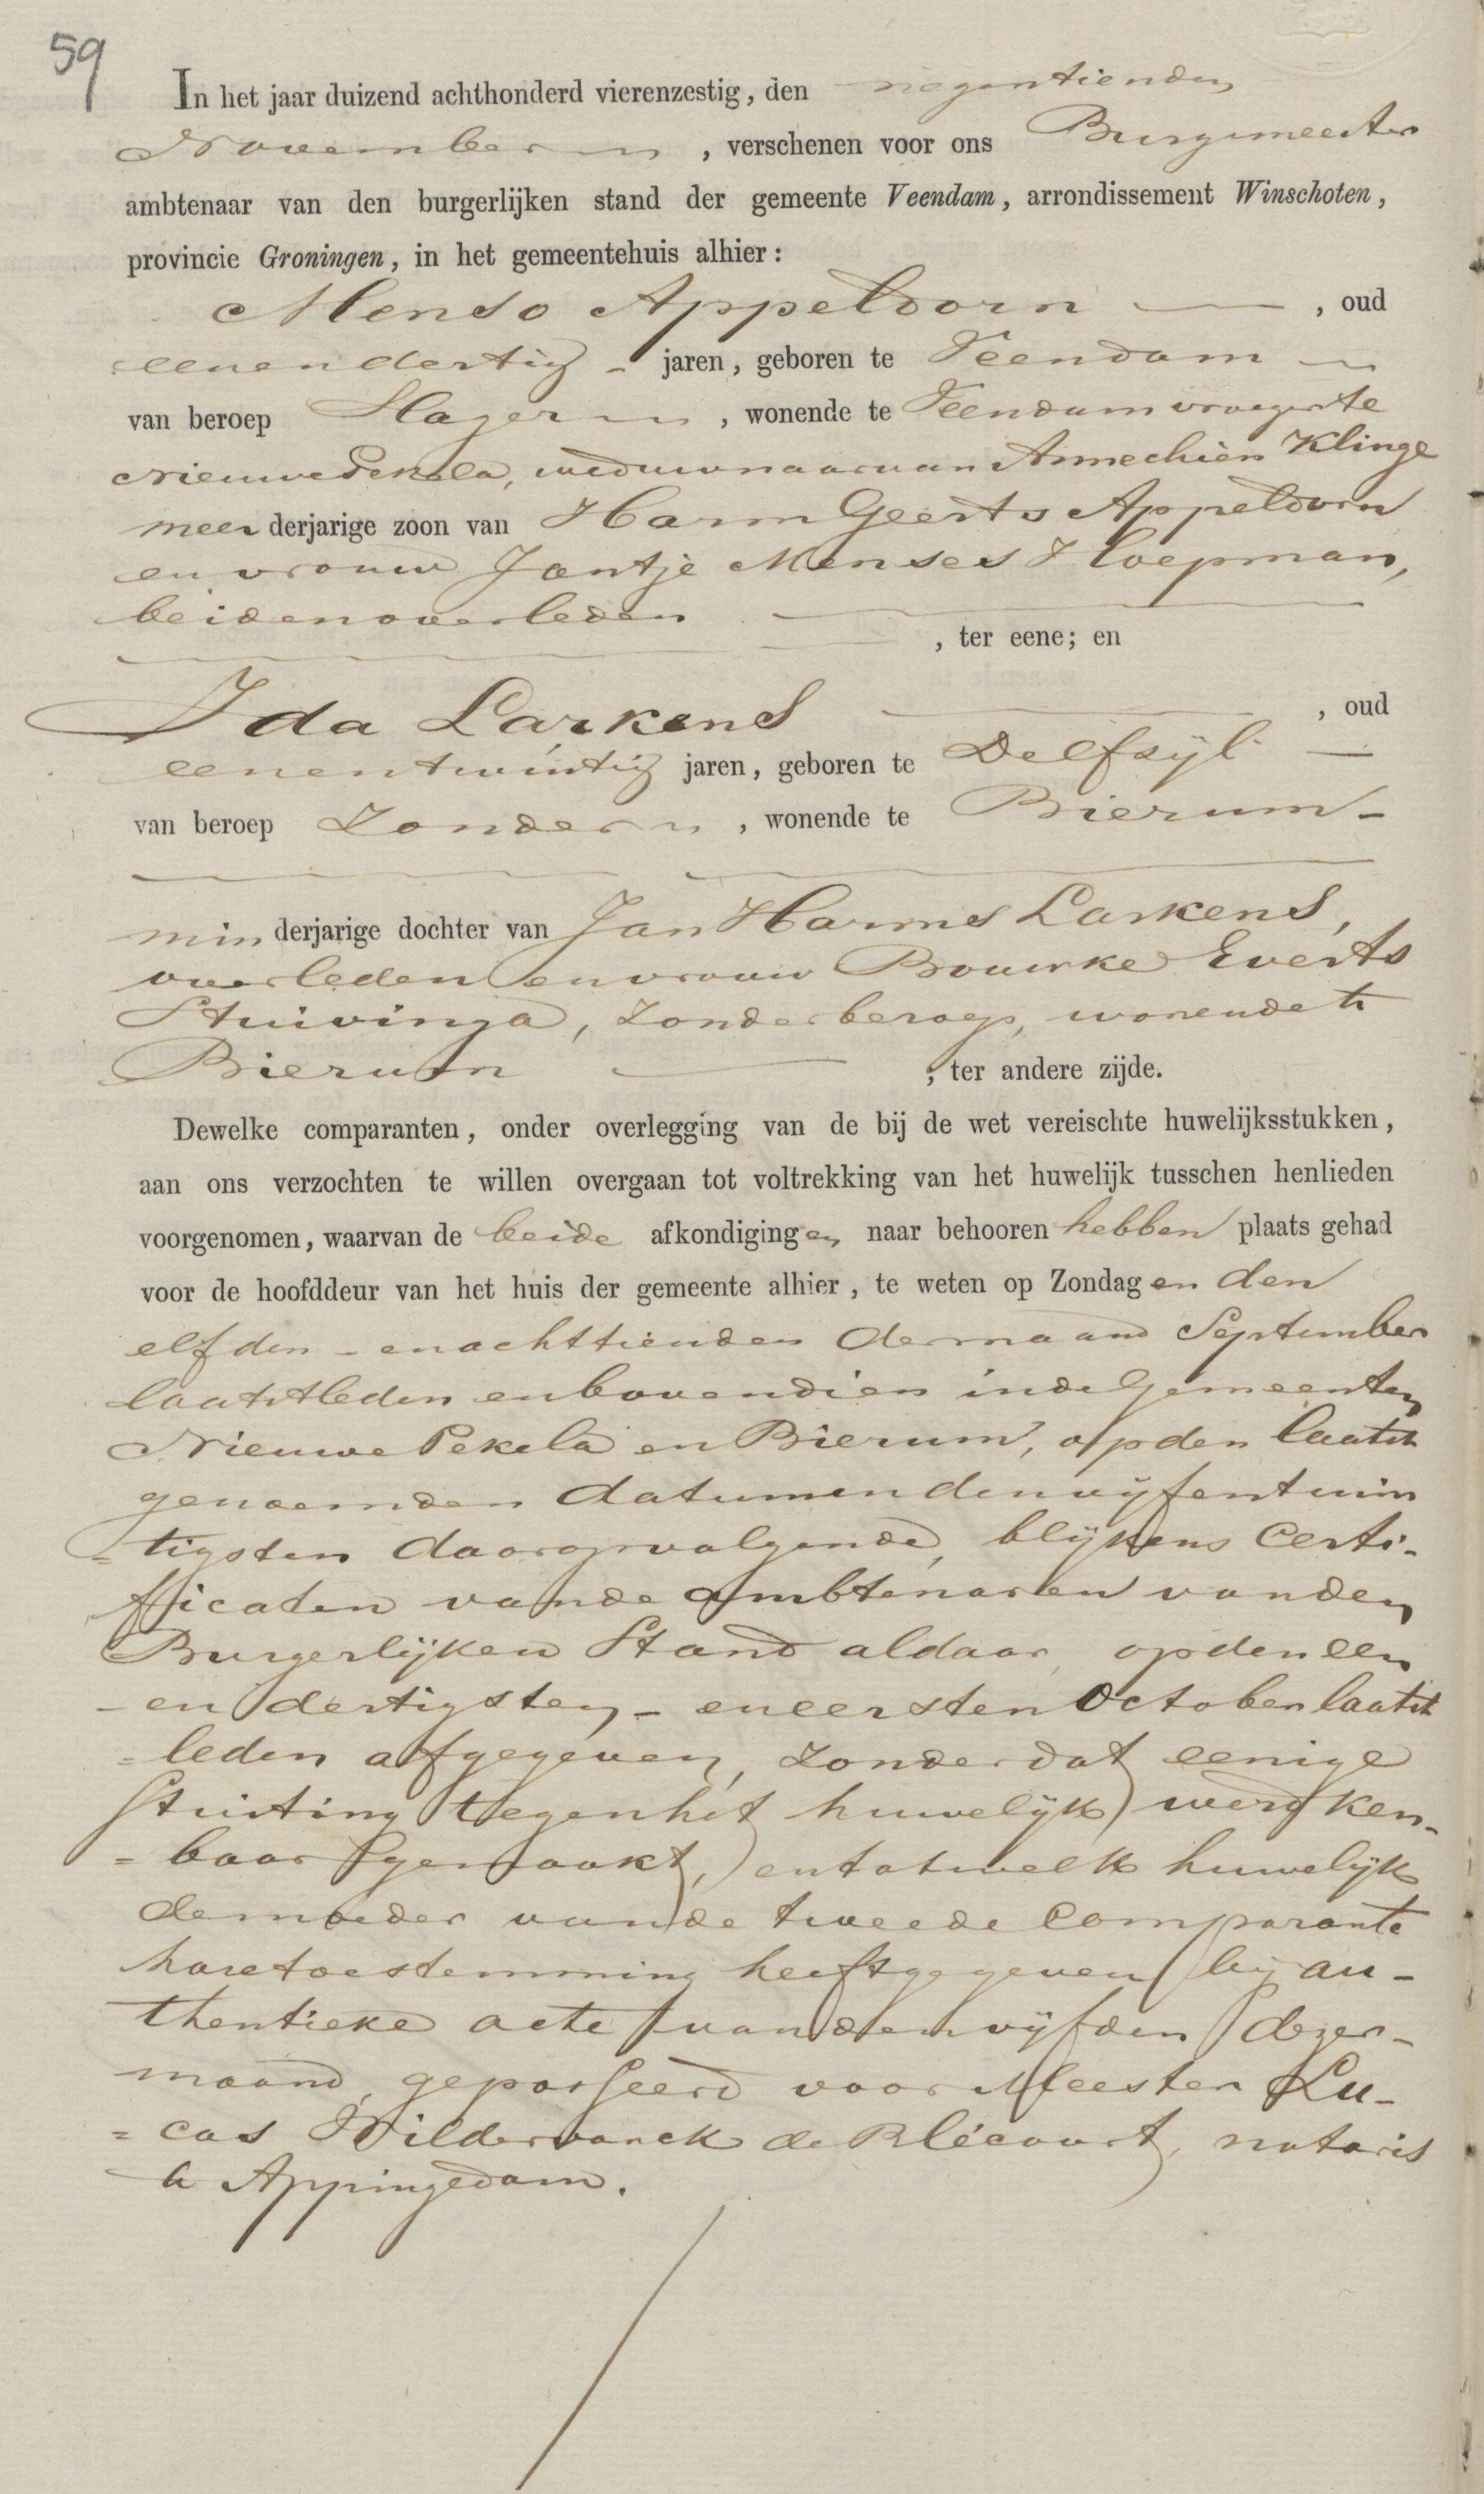 59
In het jaar duizend achthonderd vierenzestig, den negentienden
November, verschenen voor ons Burgemeester
ambtenaar van den burgerlijken stand der gemeente Veendam, arrondissement Winschoten,
provincie Groningen, in het gemeentehuis alhier:
Menso Appeldorn —, oud
eenendertig - jaren, geboren te Veendam
van beroep Slager, wonende te Veendam vroeger te
Nieuwe Pekela, weduwnaar van Annechien Klinge
meerderjarige zoon van Harm Geerts Appeldorn
en vrouw Jantje Menses Hoepman,
beiden overleden —
, ter eene; en
Ida Larkens —, oud
eenentwintig jaren, geboren te Delfzijl —
van beroep Zonder, wonende te Bierum -
minderjarige dochter van Jan Harms Larkens,
overleden en vrouw Bouwke Everts
Stuivinga, zonder beroep, wonende te
Bierum —, ter andere zijde.
Dewelke comparanten, onder overlegging van de bij de wet vereischte huwelijksstukken,
aan ons verzochten te willen overgaan tot voltrekking van het huwelijk tusschen henlieden
voorgenomen, waarvan de beide afkondigingen naar behooren hebben plaats gehad
voor de hoofddeur van het huis der gemeente alhier, te weten op Zondagen den
elfden - en achttienden der maand September
laatstleden en bovendien in de Gemeenten
Nieuwe Pekela en Bierum, op den laatst
genoemden datum en den vijfentwin
=tigsten daaropvolgende, blijkens Certi-
ficaten van de ambtenaren van den
Burgerlijken Stand aldaar, op den een
-en dertigsten - en eersten October laatst
=leden afgegeven, zonder dat eenige
Stuiting tegen het huwelijk werd ken-
=baar gemaakt, en tot welk huwelijk
de moeder van de tweede Comparante
hare toestemming heeft gegeven bij au-
thentieke acte van den vijfden dezer-
maand, gepasseerd voor Meester Lu-
=cas Wildervanck de Blécourt, notaris
te Appingedam.